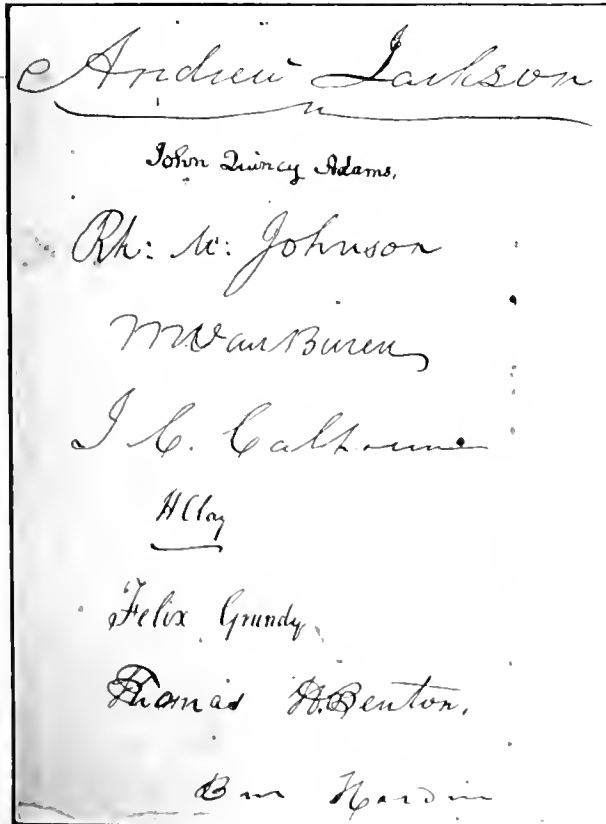 Andrew Jackson
John Quincy Adams.
Rh: M: Johnson
M Van Buren
J. C. Calhoun
H Clay
Felix Grundy
Thomas H. Benton.
Ben Hardin